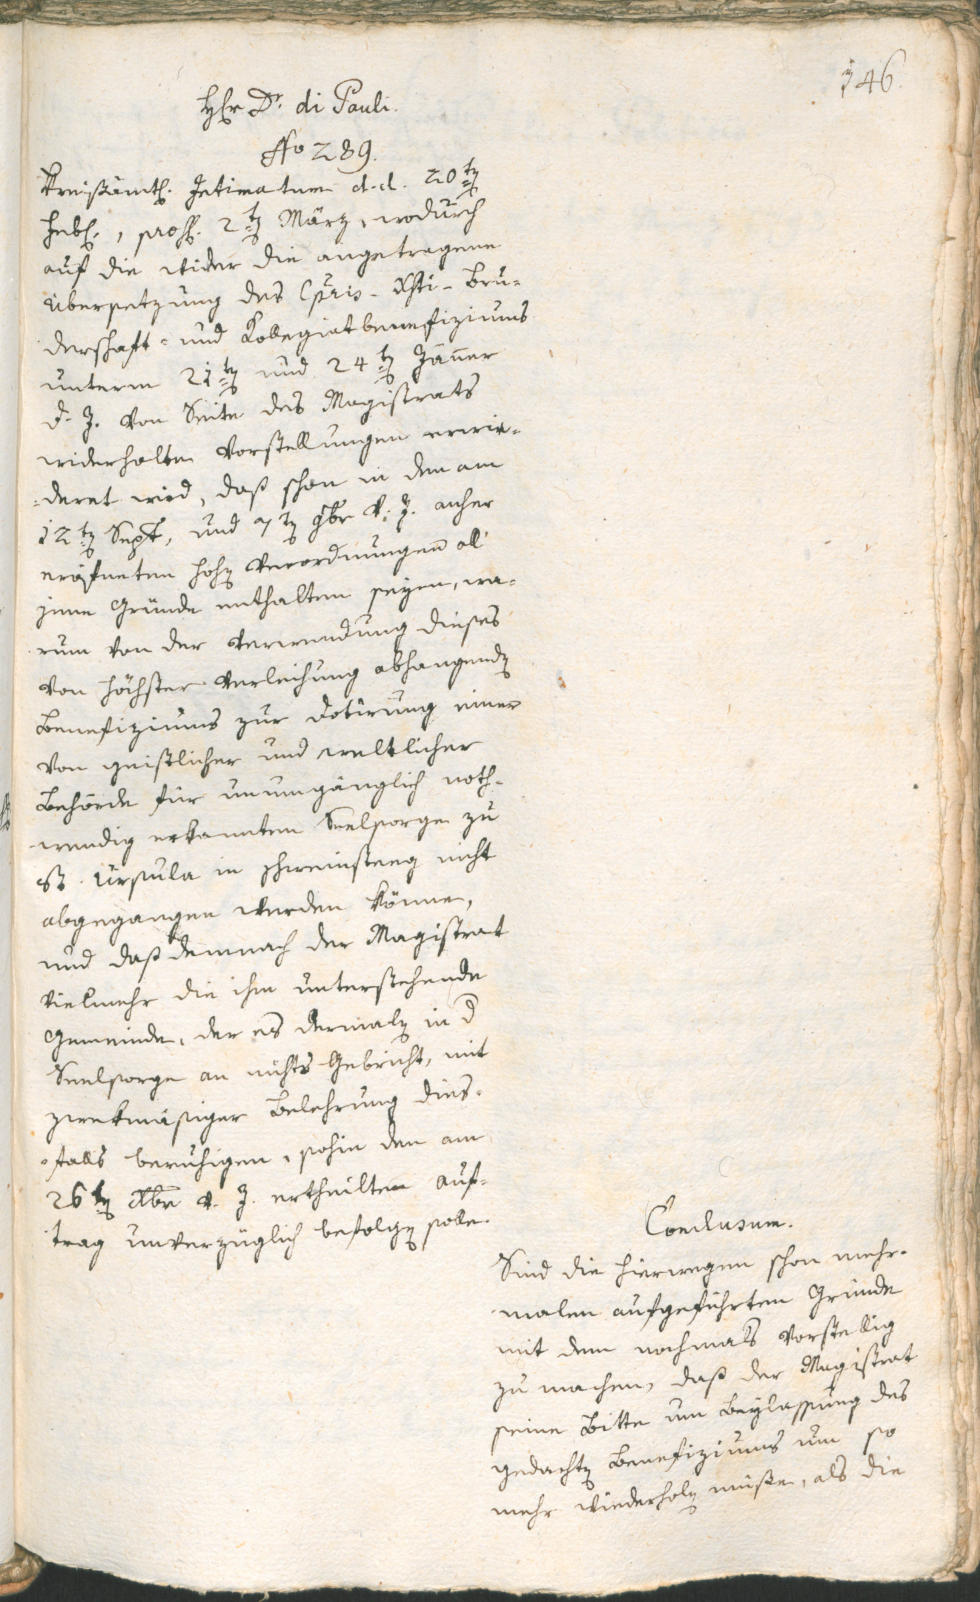 146.
Hr Dr. di Pauli.
No 289.
Kreisämtl. Intimatum d. d. 20ten
Febr., prost. 2ten März, wodurch
auf die wider die angetragene
Übersetzung des Corpris-Xsti-Bru-
derschaft- und Kollegiatbenefiziums
unterm 21ten und 24ten Jäner
d. J. von Seite des Magistrats
widerholten Vorstellungen erwie-
deret wird, daß schon in den am
12ten Sept, und 7ten 9br v. J. anher
eröfneten hohen Verordnungen all
jene Gründe enthalten seyen, wa-
rum von der Verwendung dieses
von höchster Verleihung abhangenden
Benefiziums zur Dotirung einer
von geistlicher und weltlicher
Behörde für unumgänglich noth-
wendig erkannten Seelsorge zu
St. Ursula in nicht
abgegangen werden könne,
und daß demnach der Magistrat
vielmehr die ihm unterstehende
Gemeinde, der es dermalen in d
Seelsorge an nichts Gebricht, mit
zwekmäsiger Belehrung dies-
falls beruhigen, sohin den am
26ten Xbr v. J. ertheilten Auf-
trag unverzüglich befolgen solle.
Conclusum.
Sind die hierwegen schon mehr-
malen aufgeführten Gründe
mit dem nochmals vorstellig
zu machen, daß der Magistrat
seine Bitte um Beylassung des
gedachten Benefiziums um so
mehr wiederholen müße, als die